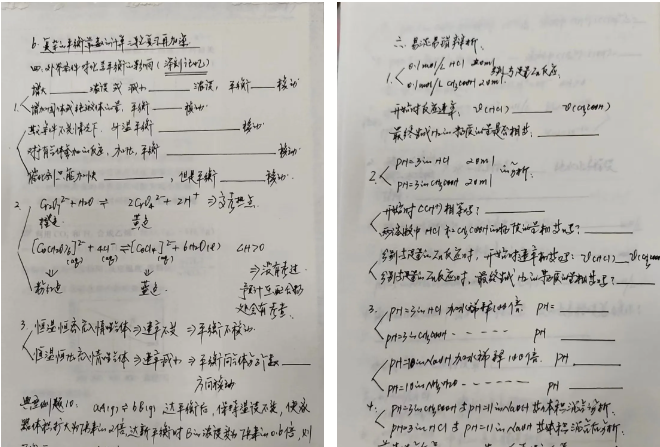 6. 复杂的平衡常数的计算三轮复习再加深
四. 外界条件对化学平衡的影响 (深刻记忆)
增大______浓度或减小______浓度, 平衡______移动
1. 增加固体或纯液体的量, 平衡______移动
其它条件不变情况下, 升温平衡______移动
对于有气体参加的反应, 加压, 平衡______移动
催化剂只能加快______, 但是平衡______移动
2. Cr₂O₇²⁻ + H₂O ⇌ 2CrO₄²⁻ + 2H⁺ ⇒ 高考热点
橙色 黄色
[Co(H₂O)₆]²⁺ + 4Cl⁻ ⇌ [CoCl₄]²⁻ + 6H₂O(l) △H>0
(aq) (aq) (aq)
⇒ 没有考过
粉红色 蓝色
3. 恒温恒容充入惰性气体 ⇒ 速率不变 ⇒ 平衡不移动
恒温恒压充入惰性气体 ⇒ 速率减小 ⇒ 平衡向气体分子数______
方向移动
典型例题10. aA(g) ⇌ bB(g) 达平衡后, 保持温度不变, 使容
器体积扩大为原来的2倍, 达新平衡时B的浓度变为原来的0.6倍, 则
二. 易混易错辨析.
1. 0.1mol/L HCl 20ml
0.1mol/L CH₃COOH 20ml 分别与足量Zn反应.
开始时反应速率, υ(HCl) ______ υ(CH₃COOH)
最终生成H₂的物质的量是否相等, ______
2. pH=3的HCl 20ml
pH=3的CH₃COOH 20ml 的分析.
开始时C(H⁺)相等吗? ______
两溶液中HCl和CH₃COOH的物质的量相等吗? ______
分别与足量的Zn反应时, 开始时速率相等吗? υ(HCl)___υ(CH₃COOH)
分别与足量的Zn反应时, 最终生成H₂的物质的量相等吗? ______
3. pH=3的HCl 加水稀释100倍 pH=______
pH=3的CH₃COOH - - - - - - pH ______
pH=11的NaOH 加水稀释100倍. pH ______
pH=11的NH₃·H₂O - - - - - - pH ______
4. pH=3的CH₃COOH与pH=11的NaOH等体积混合分析.
pH=3的HCl与pH=11的NaOH等体积混合分析.